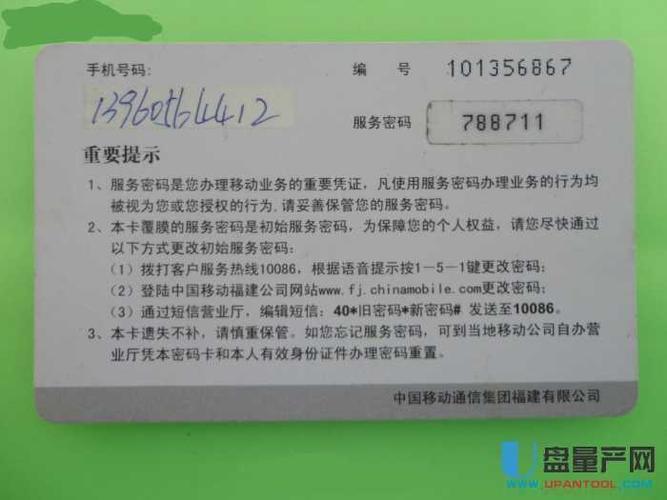 手机号码:
编 号 101356867
13960564412
服务密码 788711
重要提示
1、服务密码是您办理移动业务的重要凭证,凡使用服务密码办理业务的行为均
被视为您或您授权的行为.请妥善保管您的服务密码。
2、本卡覆膜的服务密码是初始服务密码,为保障您的个人权益,请您尽快通过
以下方式更改初始服务密码:
(1)拨打客户服务热线10086,根据语音提示按1-5-1键更改密码;
(2)登陆中国移动福建公司网站www.fj.chinamobile.com更改密码;
(3)通过短信营业厅,编辑短信:40*旧密码*新密码# 发送至10086。
3、本卡遗失不补,请慎重保管。如您忘记服务密码,可到当地移动公司自办营
业厅凭本密码卡和本人有效身份证件办理密码重置。
中国移动通信集团福建有限公司
U盘量产网
WWW.UPANTOOL.COM